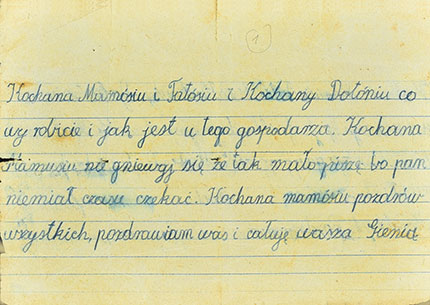 1
Kochana Mamósiu i Tatosiu i Kochany Dołóniu co
wy robicie i jak jest u tego gospodarza. Kochana
Mamusiu na gniewaj się że tak mało piszę bo pan
niemiał czasu czekać. Kochana mamósiu pozdrów
wszystkich, pozdrawiam was i całuję wasza Gienia